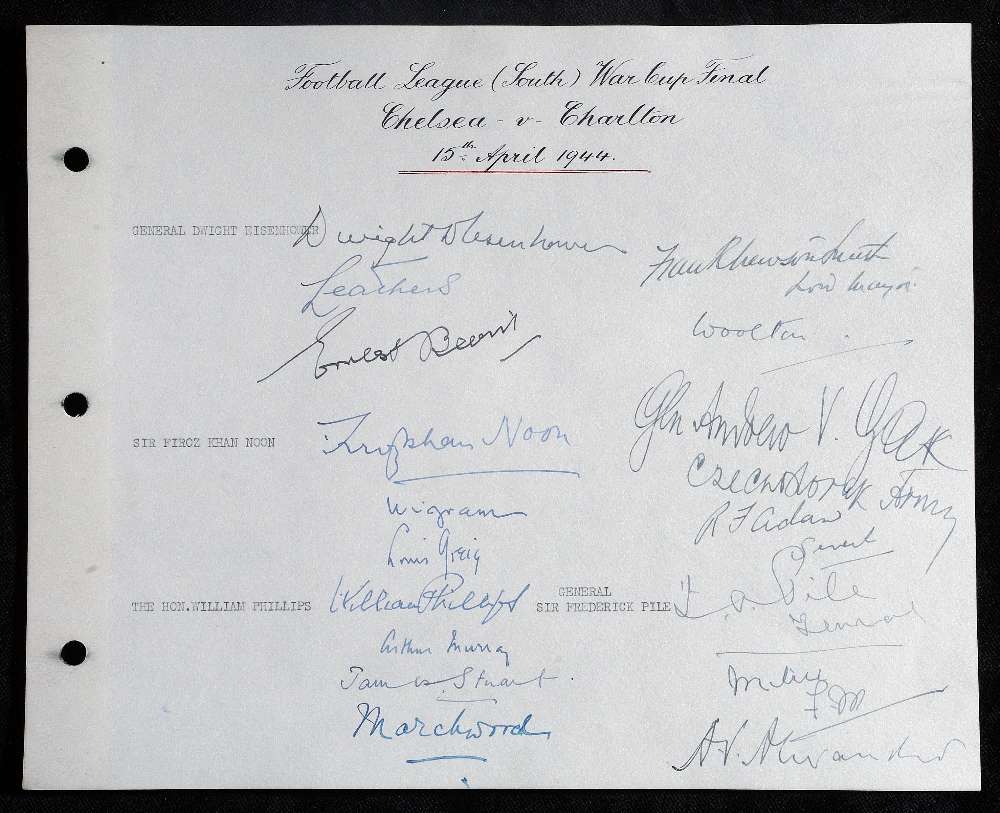 Football League (South) War Cup Final
Chelsea - v - Charlton
15th April 1944.
GENERAL DWIGHT EISENHOWER
Dwight D Eisenhower
Leathers
Ernest Bevin
Frank Newson Smith
Lord Mayor.
Woolton
SIR FIROZ KHAN NOON
Firozkhan Noon
Wigram
Louis Greig
Gen Andrew V. Gak
Czechoslovak Army
R F Adam
General
THE HON.WILLIAM PHILLIPS
William Phillips
Arthur Murray
James Stuart.
Marchwood
GENERAL
SIR FREDERICK PILE
F. A. Pile
General
F M
A V. Alexander